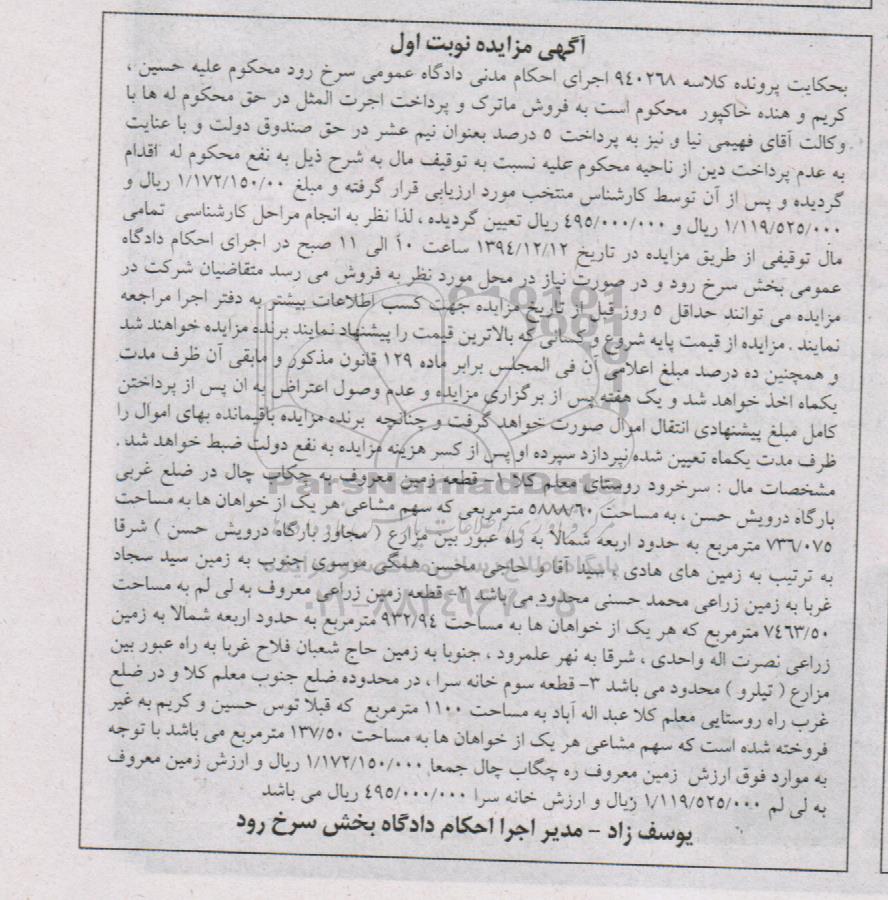 آگهی مزایده نوبت اول
بحکایت پرونده کلاسه ۹٤۰۲٦۸ اجرای احکام مدنی دادگاه عمومی سرخ رود محکوم علیه حسین ،
کریم و هنده خاکپور محکوم است به فروش ماترک و پرداخت اجرت المثل در حق محکوم له ها با
وکالت آقای فهیمی نیا و نیز به پرداخت ۵ درصد بعنوان نیم عشر در حق صندوق دولت و با عنایت
به عدم پرداخت دین از ناحیه محکوم علیه نسبت به توقیف مال به شرح ذیل به نفع محکوم له اقدام
گردیده و پس از آن توسط کارشناس منتخب مورد ارزیابی قرار گرفته و مبلغ ۱/۱۷۲/۱۵۰/۰۰ ریال و
۱/۱۱۹/۵۲۵/۰۰۰ ریال و ٤۹۵/۰۰۰/۰۰۰ ریال تعیین گردیده ، لذا نظر به انجام مراحل کارشناسی تمامی
مال توقیفی از طریق مزایده در تاریخ ۱۳۹٤/۱۲/۱۲ ساعت ۱۰ الی ۱۱ صبح در اجرای احکام دادگاه
عمومی بخش سرخ رود و در صورت نیاز در محل مورد نظر به فروش می رسد متقاضیان شرکت در
مزایده می توانند حداقل ۵ روز قبل از تاریخ مزایده جهت کسب اطلاعات بیشتر به دفتر اجرا مراجعه
نمایند . مزایده از قیمت پایه شروع و کسانی که بالاترین قیمت را پیشنهاد نمایند برنده مزایده خواهند شد
و همچنین ده درصد مبلغ اعلامی آن فی المجلس برابر ماده ۱۲۹ قانون مذکور و مابقی آن ظرف مدت
یکماه اخذ خواهد شد و یک هفته پس از برگزاری مزایده و عدم وصول اعتراض به ان پس از پرداختن
کامل مبلغ پیشنهادی انتقال اموال صورت خواهد گرفت و چنانچه برنده مزایده باقیمانده بهای اموال را
ظرف مدت یکماه تعیین شده نپردازد سپرده او پس از کسر هزینه مزایده به نفع دولت ضبط خواهد شد .
مشخصات مال : سرخرود روستای معلم کلا ۱- قطعه زمین معروف به چکاب چال در ضلع غربی
بارگاه درویش حسن ، به مساحت ۵۸۸۸/٦۰ مترمربعی که سهم مشاعی هر یک از خواهان ها به مساحت
۷۳٦/۰۷۵ مترمربع به حدود اربعه شمالا به راه عبور بین مزارع ( مجاور بارگاه درویش حسن ) شرقا
به ترتیب به زمین های هادی ، سید آقا و حاجی محسن همگی موسوی جنوب به زمین سید سجاد
غربا به زمین زراعی محمد حسنی محدود می باشد ۲- قطعه زمین زراعی معروف به لی لم به مساحت
۷٤٦۳/۵۰ مترمربع که هر یک از خواهان ها به مساحت ۹۳۲/۹٤ مترمربع به حدود اربعه شمالا به زمین
زراعی نصرت اله واحدی ، شرقا به نهر علمرود ، جنوبا به زمین حاج شعبان فلاح غربا به راه عبور بین
مزارع ( تیلرو ) محدود می باشد ۳- قطعه سوم خانه سرا ، در محدوده ضلع جنوب معلم کلا و در ضلع
غرب راه روستایی معلم کلا عبد اله آباد به مساحت ۱۱۰۰ مترمربع که قبلا توس حسین و کریم به غیر
فروخته شده است که سهم مشاعی هر یک از خواهان ها به مساحت ۱۳۷/۵۰ مترمربع می باشد با توجه
به موارد فوق ارزش زمین معروف ره چگاب چال جمعا ۱/۱۷۲/۱۵۰/۰۰۰ ریال و ارزش زمین معروف
به لی لم ۱/۱۱۹/۵۲۵/۰۰۰ ریال و ارزش خانه سرا ٤۹۵/۰۰۰/۰۰۰ ریال می باشد
یوسف زاد - مدیر اجرا احکام دادگاه بخش سرخ رود
ParsNamadData